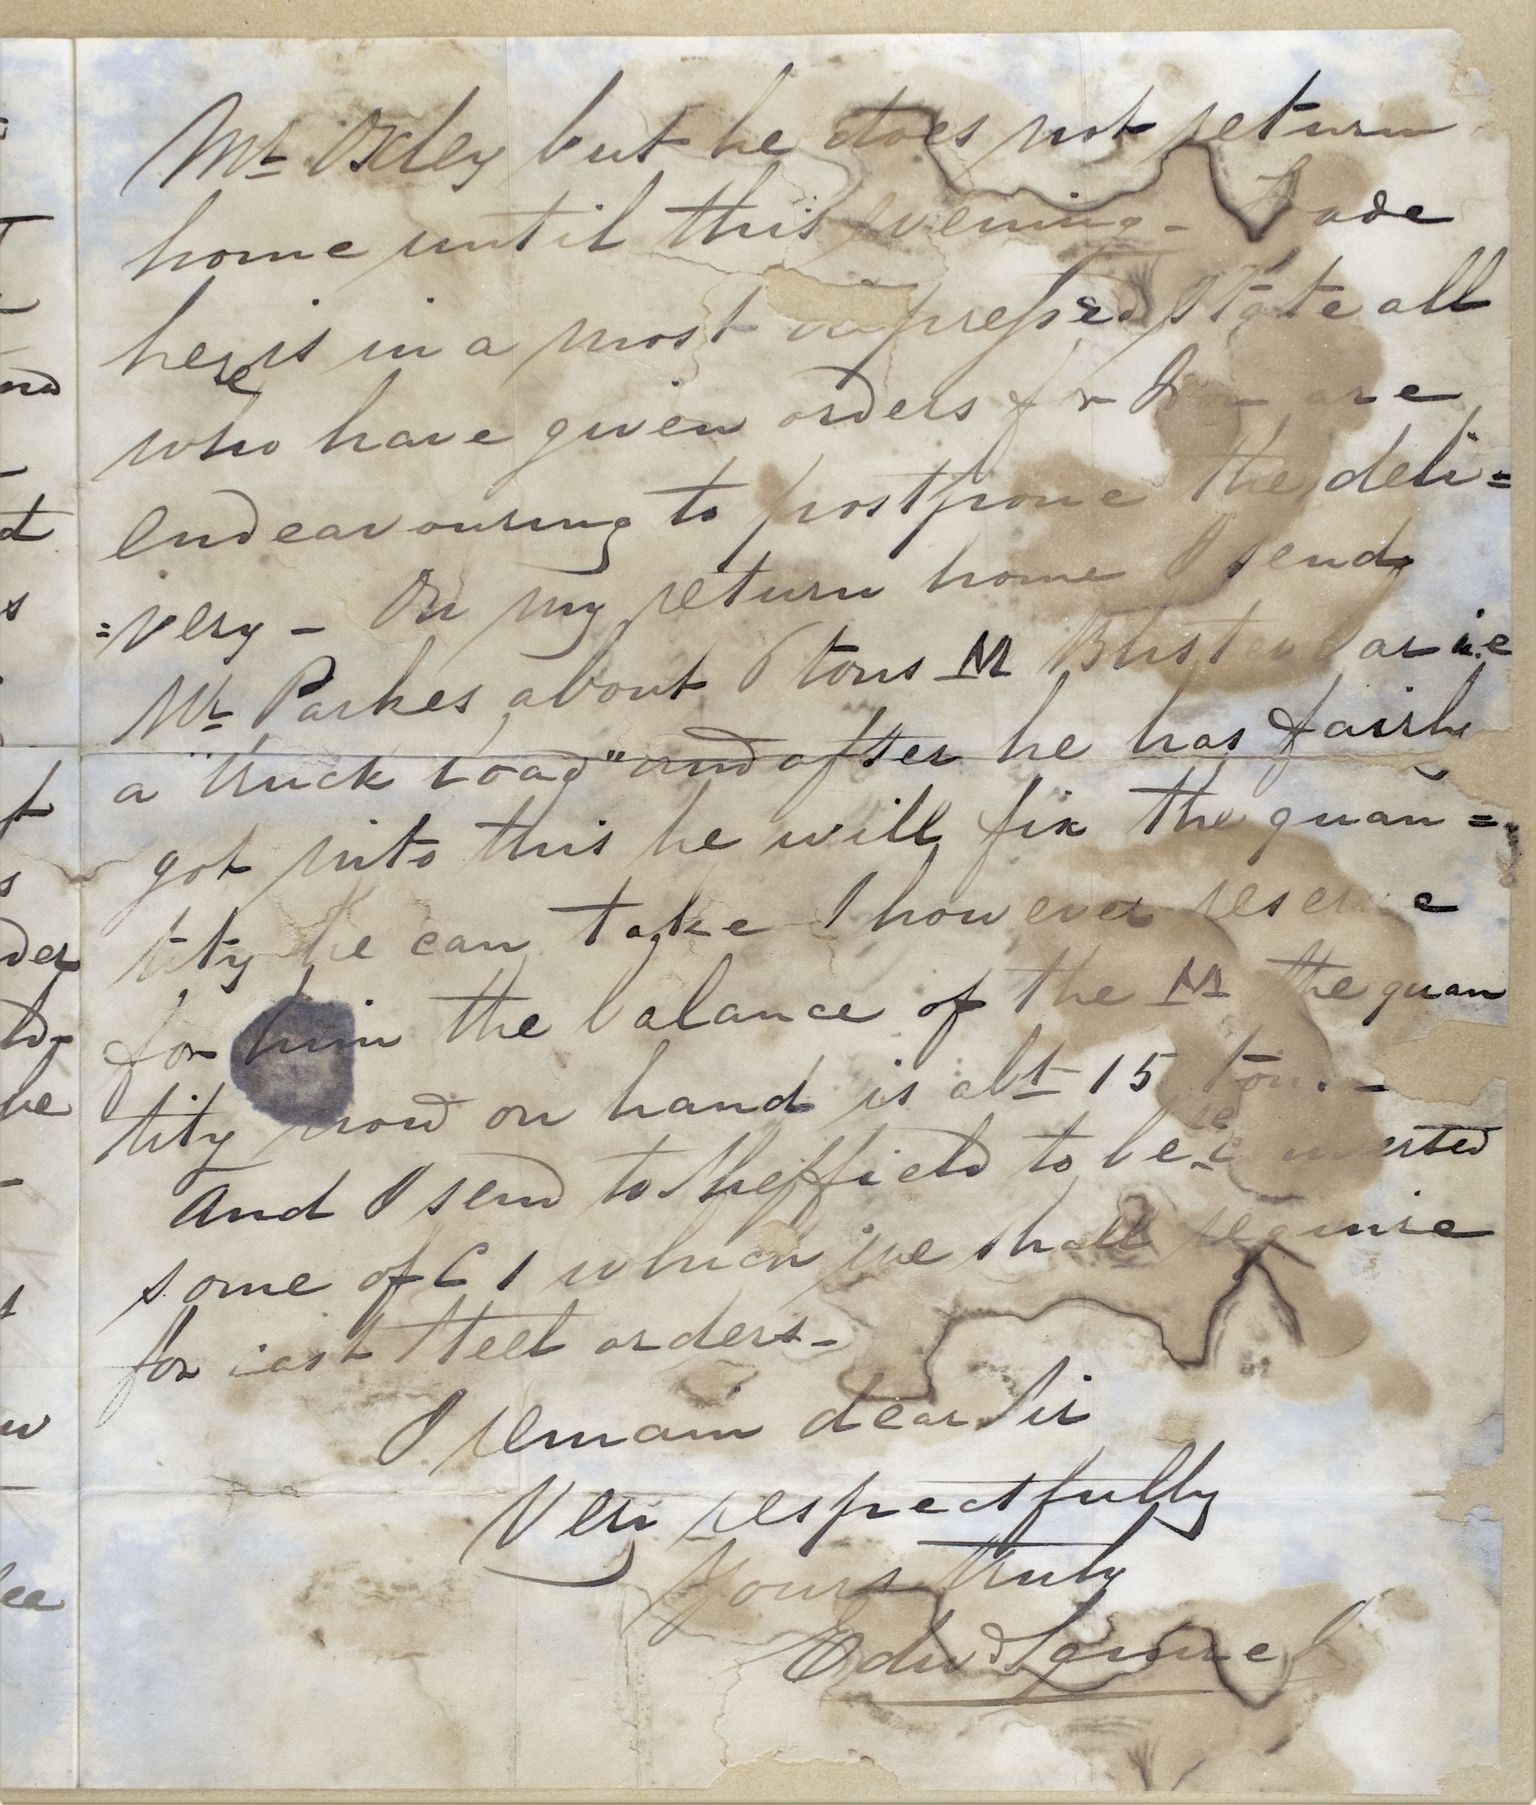 Mr Oxley but he does not return
home until this evening - Trade
here is in a most depressed state all
who have given orders for Iron are
endeavouring to postpone the deli=
=very - On my return home I send
Mr Parkes about 6 tons M Blister bar i.e
a "truck load" and after he has fairly
got into this he will fix the quan=
tity he can take I however reserve
for him the balance of the M the quan
tity now on hand is abt 15 tons. -
And I send to Sheffield to be converted
some of C 1 which we shall require
for cast steel orders -
I remain dear Sir
Very respectfully
Yours truly
Edwd